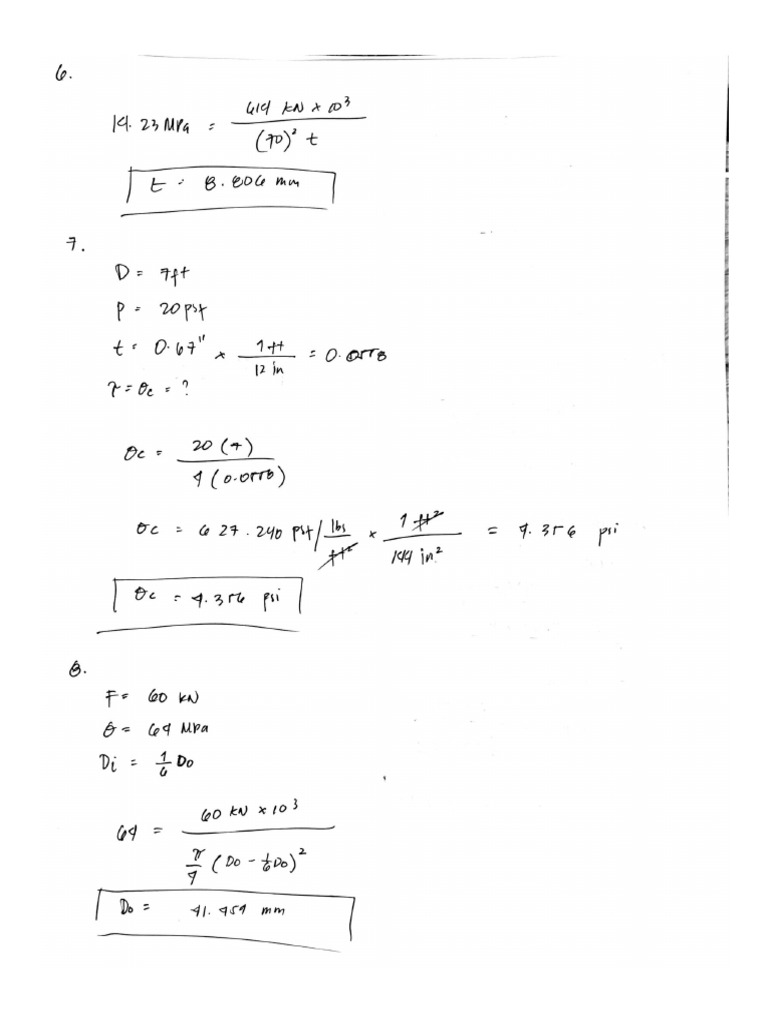 6.
14.23 MPa = 614 kN x 10³ / (70)² t
t = 8.806 mm
7.
D = 7ft
P = 20 psf
t = 0.67" x 1 ft / 12 in = 0.0558
τ = σc = ?
σc = 20 (7) / 4 (0.0558)
σc = 627.240 psf / lbs / ft² x 1 ft² / 144 in² = 4.356 psi
σc = 4.356 psi
8.
F = 60 kN
σ = 64 MPa
Di = 1/6 Do
64 = 60 kN x 10³ / π/4 (Do - 1/6 Do)²
Do = 41.459 mm